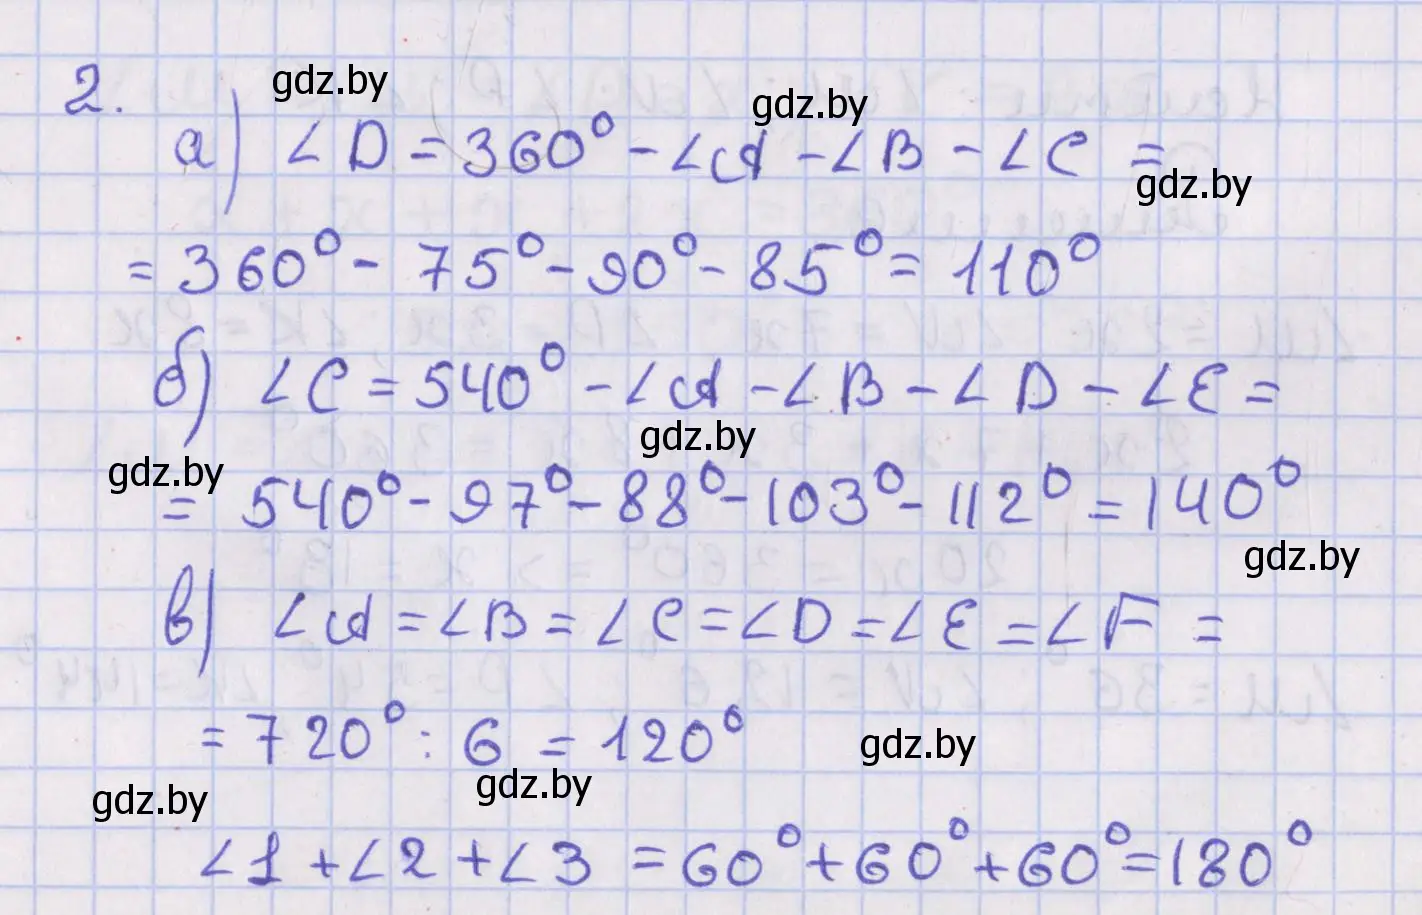 gdz.by
gdz.by
2.
а) ∠D = 360° - ∠A - ∠B - ∠C =
gdz.by
= 360° - 75° - 90° - 85° = 110°
б) ∠C = 540° - ∠A - ∠B - ∠D - ∠E =
gdz.by
gdz.by
= 540° - 97° - 88° - 103° - 112° = 140°
gdz.by
в) ∠A = ∠B = ∠C = ∠D = ∠E = ∠F =
= 720° : 6 = 120°
gdz.by
gdz.by
gdz.by
∠1 + ∠2 + ∠3 = 60° + 60° + 60° = 180°